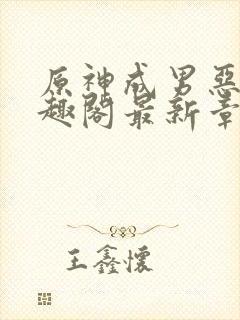 原神戒男惡
趣閣最新章
王鑫懷